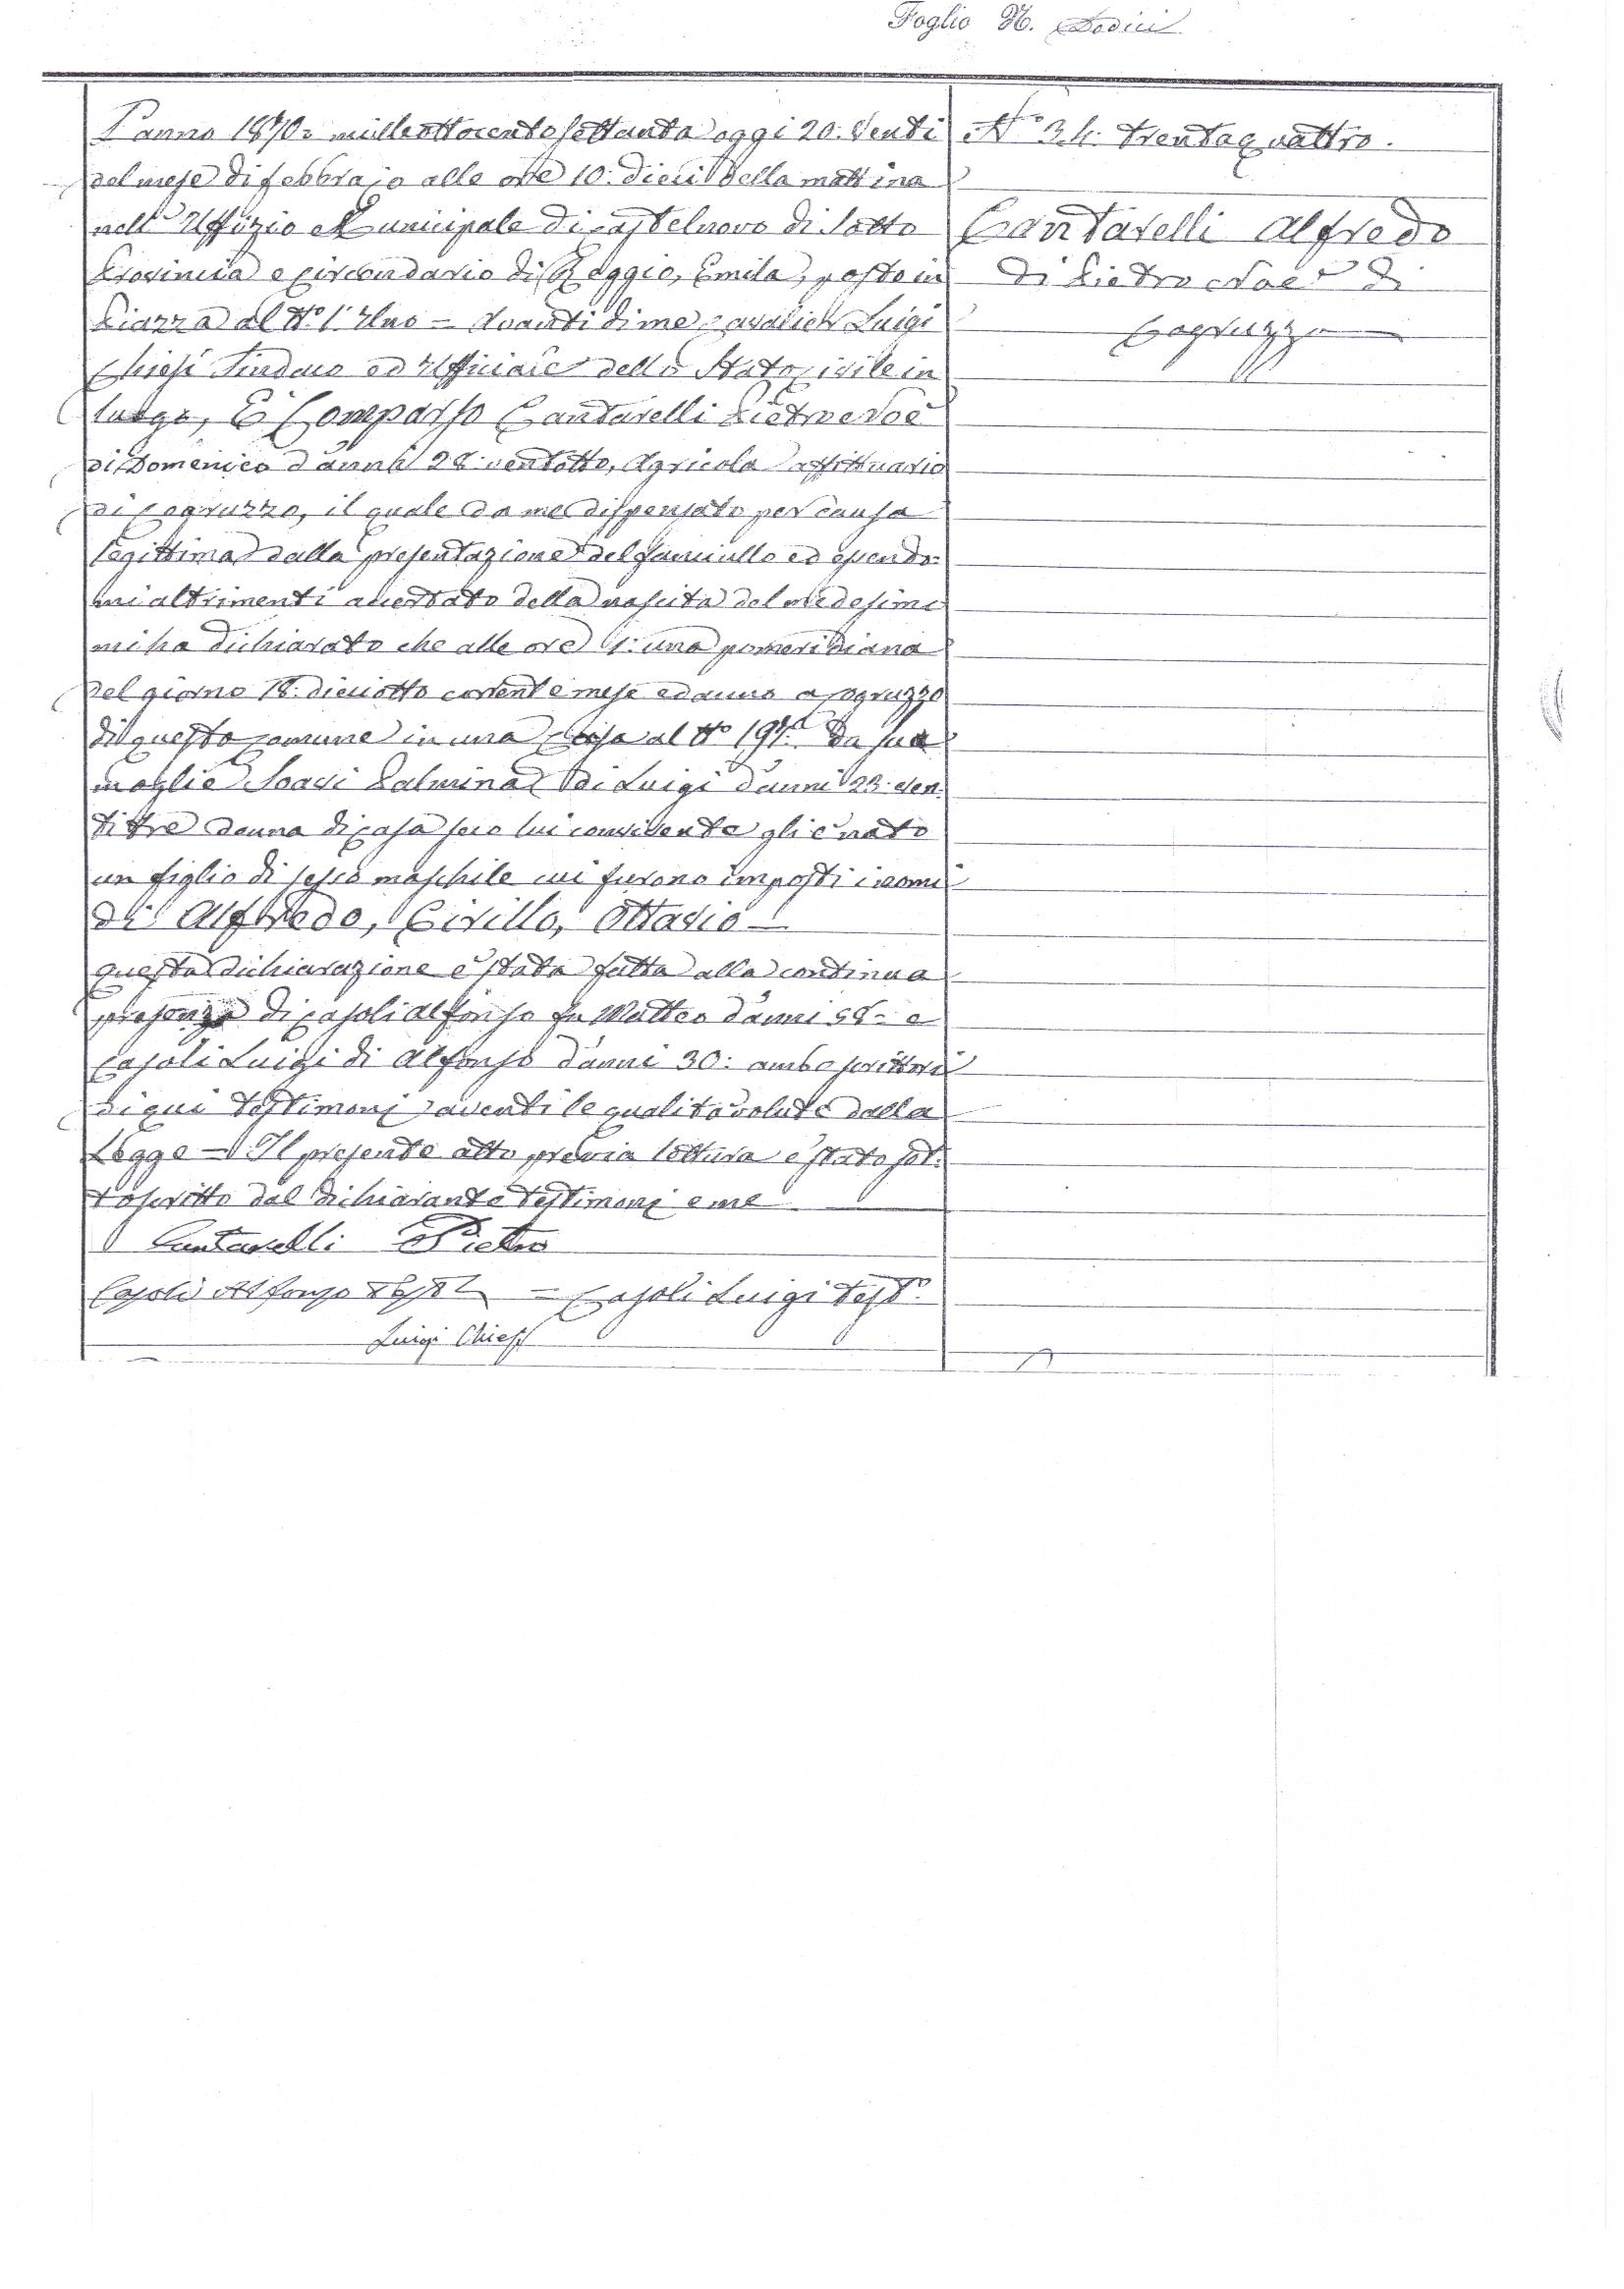 Foglio N. Dodici
L'anno 1870: milleottocentosettanta oggi 20: Venti
del mese di febbrajo alle ore 10: dieci della mattina
nell'Uffizio Municipale di Castelnovo di Sotto
Provincia e circondario di Reggio, Emila, posto in
Piazza al N.º 1º Uno = Avanti di me Cavalier Luigi
Chiesi Sindaco ed Ufficiale dello Stato Civile in
luogo, È Comparso Cantarelli Pietro Noè
di Domenico d'anni 28: ventotto, Agricola affittuario
di Cogruzzo, il quale da me dispensato per causa
legittima dalla presentazione del fanciullo ed essendo=
mi altrimenti accertato della nascita del medesimo
mi ha dichiarato che alle ore 1: una pomeridiana
del giorno 18: dieciotto corrente mese ed anno a Cogruzzo
di questo Comune in una Casa al Nº da sua
moglie Soavi Palmina di Luigi d'anni 23: ven=
titre donna di casa seco lui convivente gli è nato
un figlio di sesso maschile cui furono imposti i nomi
di Alfredo, Cirillo, Ottavio —
questa dichiarazione è stata fatta alla continua
presenza di Casoli Alfonso fu Matteo d'anni 58: e
Casoli Luigi di Alfonso d'anni 30: ambo scrittori
di qui testimonj aventi le qualità volute dalla
Legge = Il presente atto previa lettura è stato sot=
toscritto dal dichiarante testimonj e me
Cantarelli Pietro
Casoli Alfonso = Casoli Luigi test.º
Luigi Chiesi
Nº 34: trentaquattro.
Cantarelli Alfredo
di Pietro Noè di
Cogruzzo